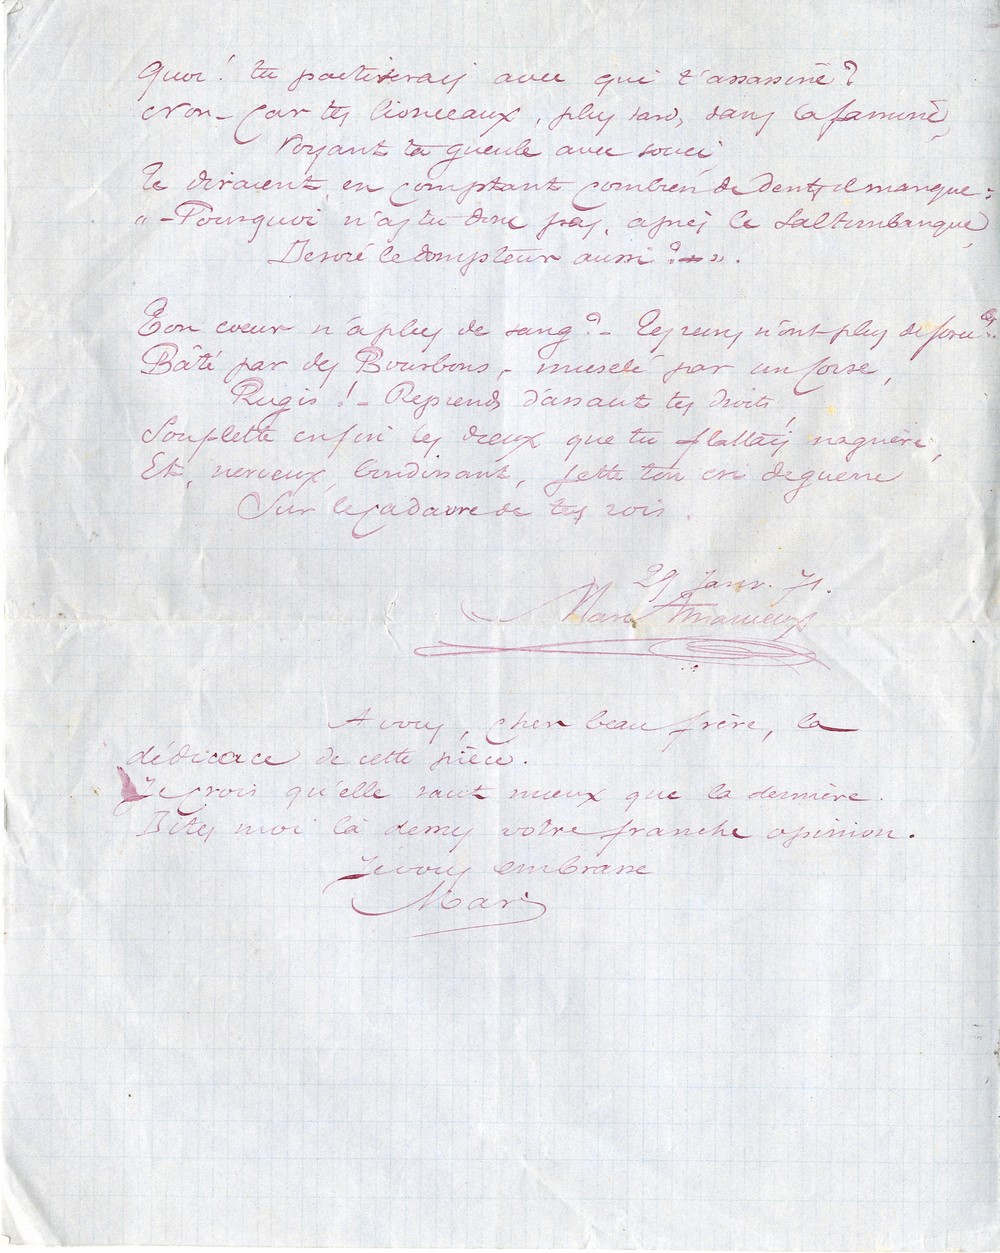 Quoi! tu pactiserais avec qui t'assassine?
Non – Car tes lionceaux, plus tard, dans la famine,
Voyant ta gueule avec souci
Te diraient en comptant combien de dents il manque:
"– Pourquoi n'as tu donc pas, après le saltimbanque,
Dévoré le dompteur aussi? – ".
Ton coeur n'a plus de sang? – Tes reins n'ont plus de forces?
Bâté par des Bourbons, – muselé par un Corse,
Rugis! – Reprends d'assaut tes droits,
Soufflette enfin les dieux que tu flattais naguère,
Et, nerveux, bondissant, jette ton cri de guerre
Sur le cadavre de tes rois.
29 Janv. 71.
Marc Amanieux
A vous, cher beau frère, la
dédicace de cette pièce.
Je crois qu'elle vaut mieux que la dernière.
Dites moi là dessus votre franche opinion.
Je vous embrasse
Marc